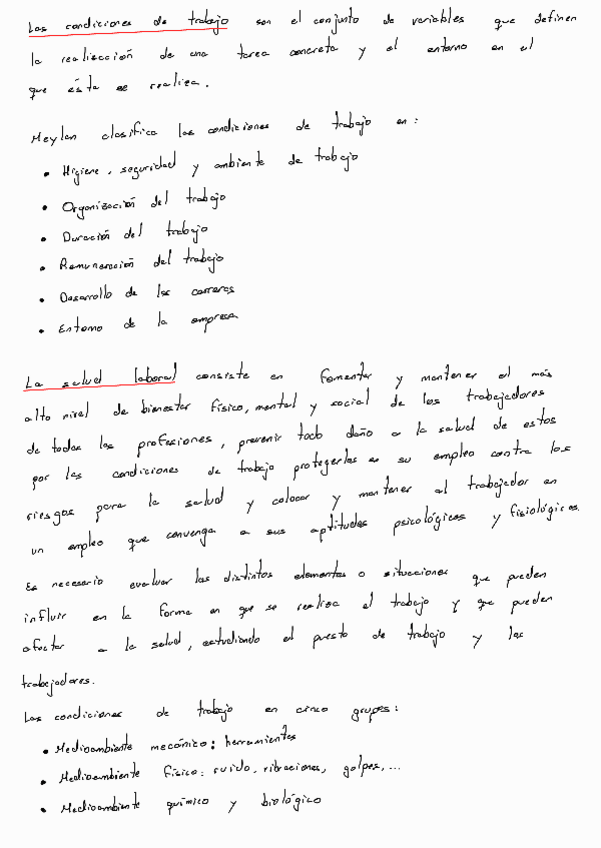 Las condiciones de trabajo son el conjunto de variables que definen
la realización de una tarea concreta y el entorno en el
que ésta se realiza.
Meylan clasifica las condiciones de trabajo en:
• Higiene, seguridad y ambiente de trabajo
• Organización del trabajo
• Duración del trabajo
• Remuneración del trabajo
• Desarrollo de las carreras
• Entorno de la empresa
La salud laboral consiste en fomentar y mantener el más
alto nivel de bienestar físico, mental y social de los trabajadores
de todas las profesiones, prevenir todo daño a la salud de estos
por las condiciones de trabajo protegerlas en su empleo contra los
riesgos para la salud y colocar y mantener al trabajador en
un empleo que convenga a sus aptitudes psicológicas y fisiológicas.
Es necesario evaluar los distintos elementos o situaciones que pueden
influir en la forma en que se realiza el trabajo y que pueden
afectar a la salud, estudiando el puesto de trabajo y los
trabajadores.
Las condiciones de trabajo en cinco grupos:
• Medioambiente mecánico: herramientas
• Medioambiente físico: ruido, vibraciones, golpes,...
• Medioambiente químico y biológico